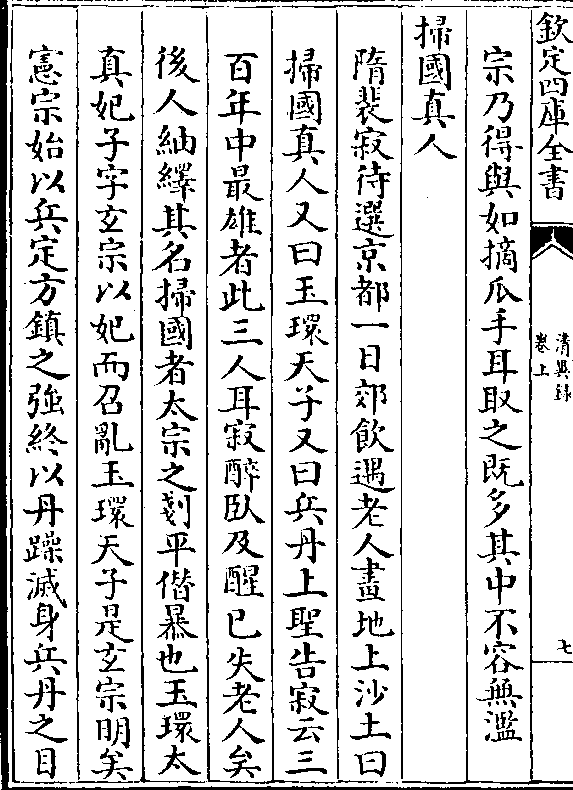 欽定四庫全書
清異錄
卷上
七
宗乃得與如摘瓜手耳取之既多其中不容無濫
掃國真人
隋裴寂待選京都一日郊飲遇老人畫地上沙土曰
掃國真人又曰玉環天子又曰兵丹上聖告寂云三
百年中最雄者此三人耳寂醉臥及醒已失老人矣
後人紬繹其名掃國者太宗之剗平僭暴也玉環太
真妃子字玄宗以妃而召亂玉環天子是玄宗明矣
憲宗始以兵定方鎮之強終以丹躁滅身兵丹之目